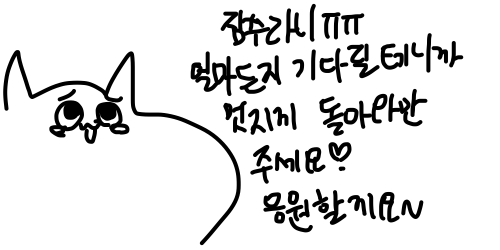 잠수라니ㅠㅠ
얼마든지 기다릴테니까
멋지게 돌아와만
주세요♡
응원할게요~